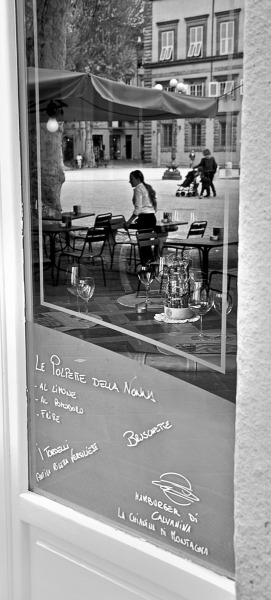 Le Polpette della Nonna
- al limone
- al pomodoro
- fritte
Bruschette
I Tordelli
Ricetta Versiliese
Hamburger di
Calvanina
La Chianina di Montagna